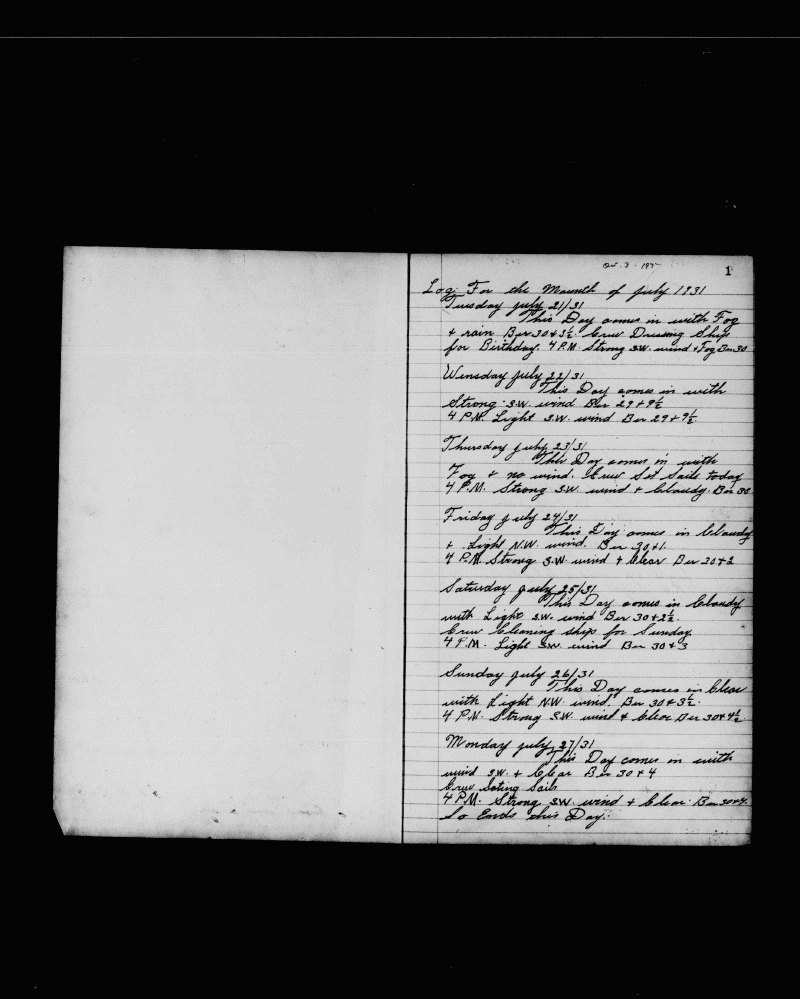 1
Log. For the Mounth of July 1931
Tuesday July 21/31
This Day comes in with Fog
+ rain Bar 30 + 3½. Crew Dressing Ship
for Birthday. 4 P.M. Strong S.W. wind + Fog Bar 30
Wensday July 22/31
This Day comes in with
Strong S.W. wind Bar 29 + 9½
4 P.M. Light S.W. wind Bar 29 + 9½
Thursday July 23/31
This Day comes in with
Fog + no wind. Crew Set Sails today
4 P.M. Strong S.W. wind + Cloudy. Bar 30
Friday July 24/31
This Day comes in Cloudy
+ Light N.W. wind. Bar 30 + 1.
4 P.M. Strong S.W. wind + Clear Bar 30 + 2
Saturday July 25/31
This Day comes in Cloudy
with Light S.W. wind Bar 30 + 2½.
Crew Cleaning ship for Sunday
4 P.M. Light S.W. wind Bar 30 + 3
Sunday July 26/31
This Day comes in Clear
with Light N.W. wind. Bar 30 + 3½.
4 P.M. Strong S.W. wind + Clear Bar 30 + 4½.
Monday July 27/31
This Day comes in with
wind S.W. + Clear Bar 30 + 4
Crew Seting Sails
4 P.M. Strong S.W. wind + Clear Bar 30 + 4.
So Ends this Day.